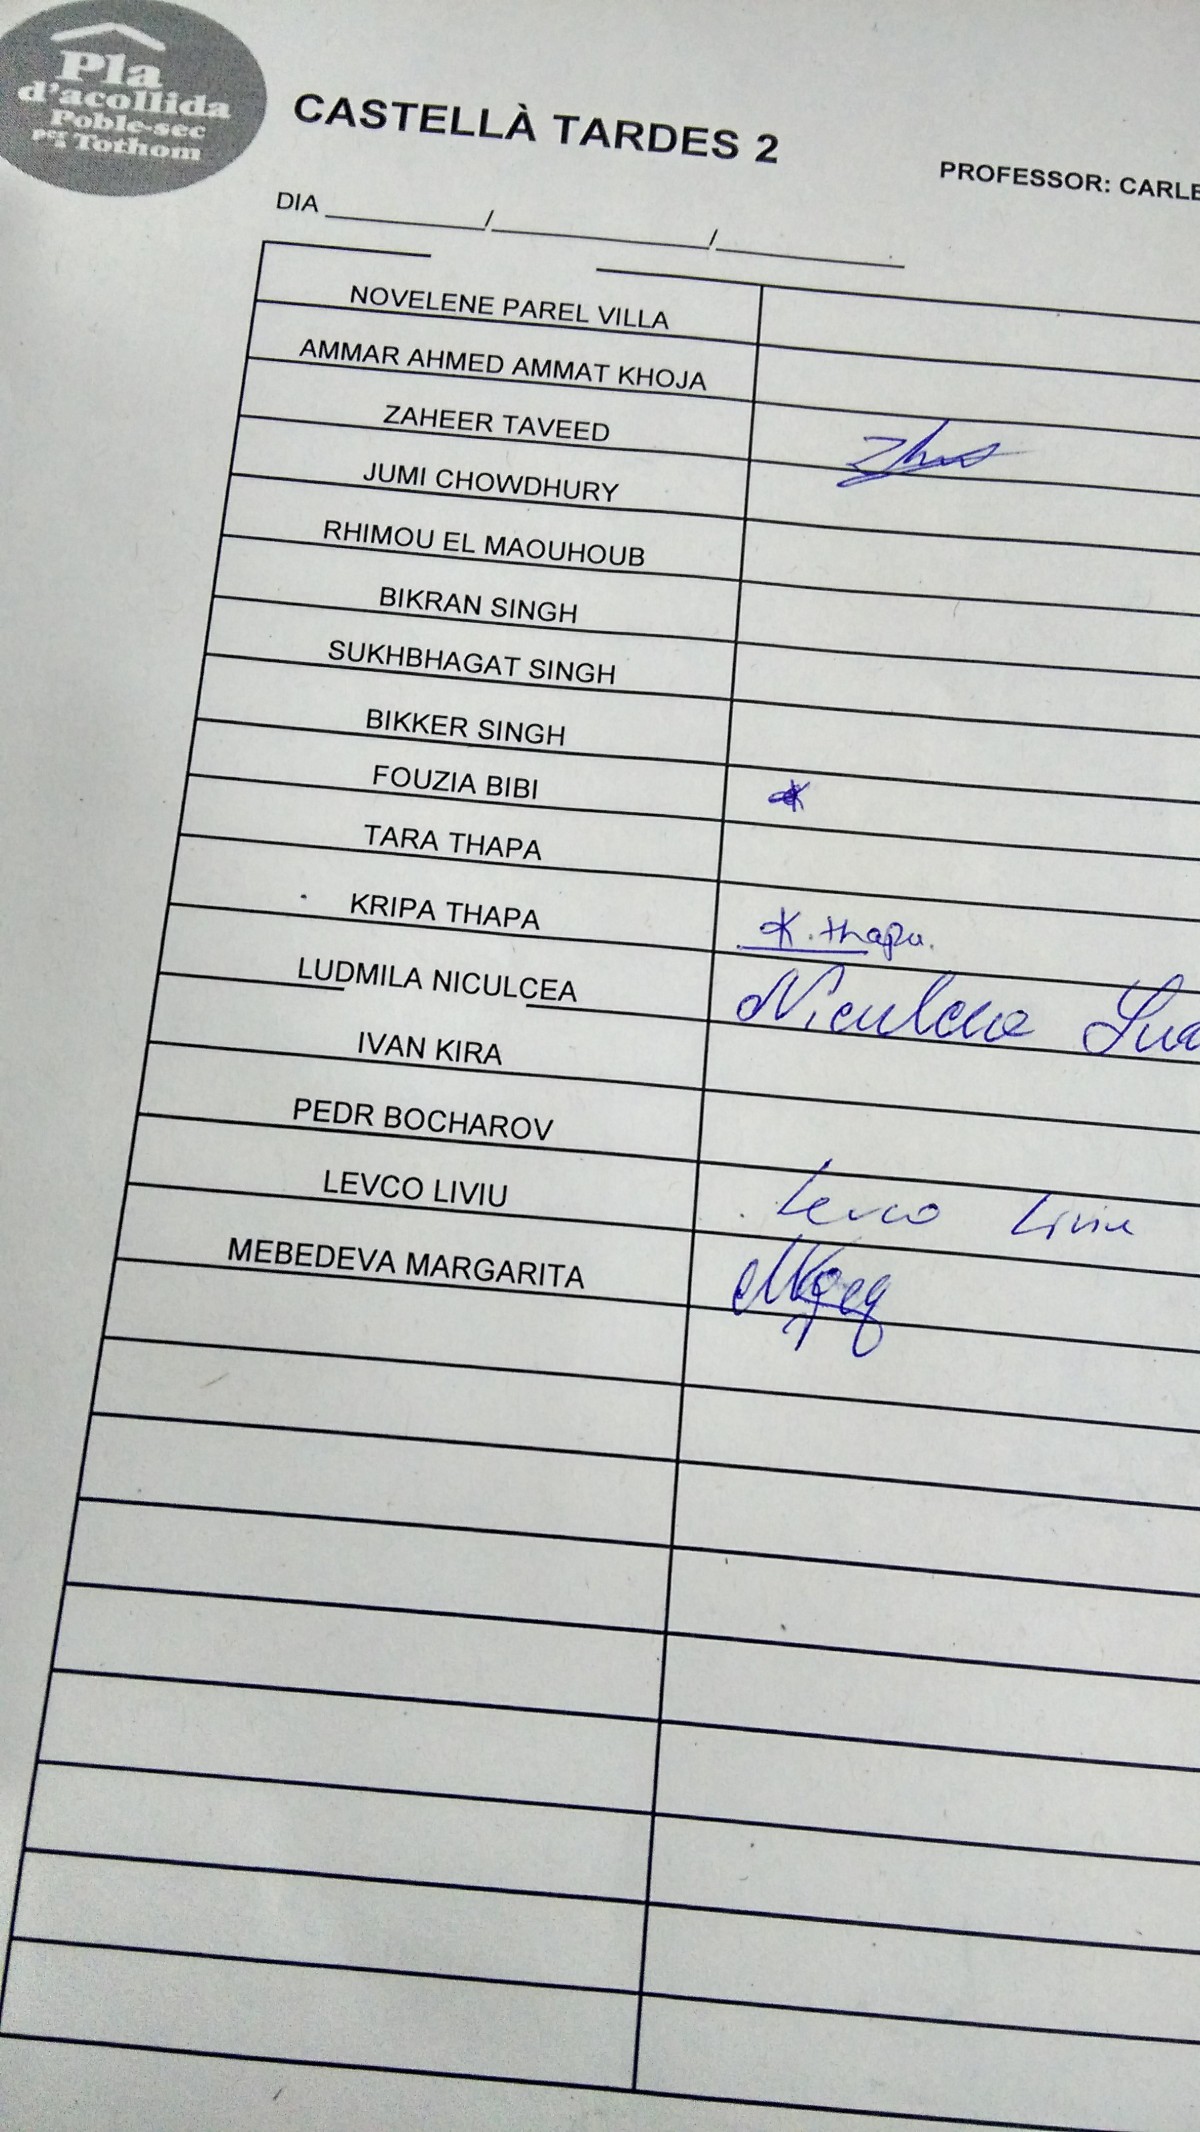 Pla
d'acollida
Poble-sec
per a Tothom
CASTELLÀ TARDES 2
PROFESSOR: CARLE
DIA ________/________/________
NOVELENE PAREL VILLA
AMMAR AHMED AMMAT KHOJA
ZAHEER TAVEED
JUMI CHOWDHURY
RHIMOU EL MAOUHOUB
BIKRAN SINGH
SUKHBHAGAT SINGH
BIKKER SINGH
FOUZIA BIBI
TARA THAPA
KRIPA THAPA K. thapa.
LUDMILA NICULCEA Niculcea
IVAN KIRA
PEDR BOCHAROV
LEVCO LIVIU Levco Liviu
MEBEDEVA MARGARITA